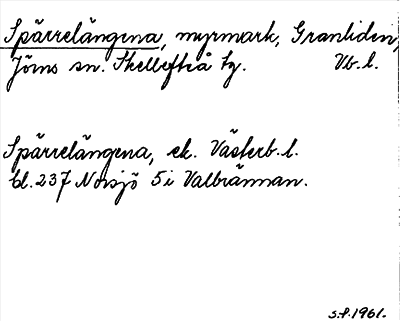 Spärrelängena, myrmark, Granliden,
Jörns sn. Skellefteå tg. Vb.l.
Spärrelängena, ek. Västerb.l.
bl. 237 Norsjö 5i Valbrännan.
s.f.1961.